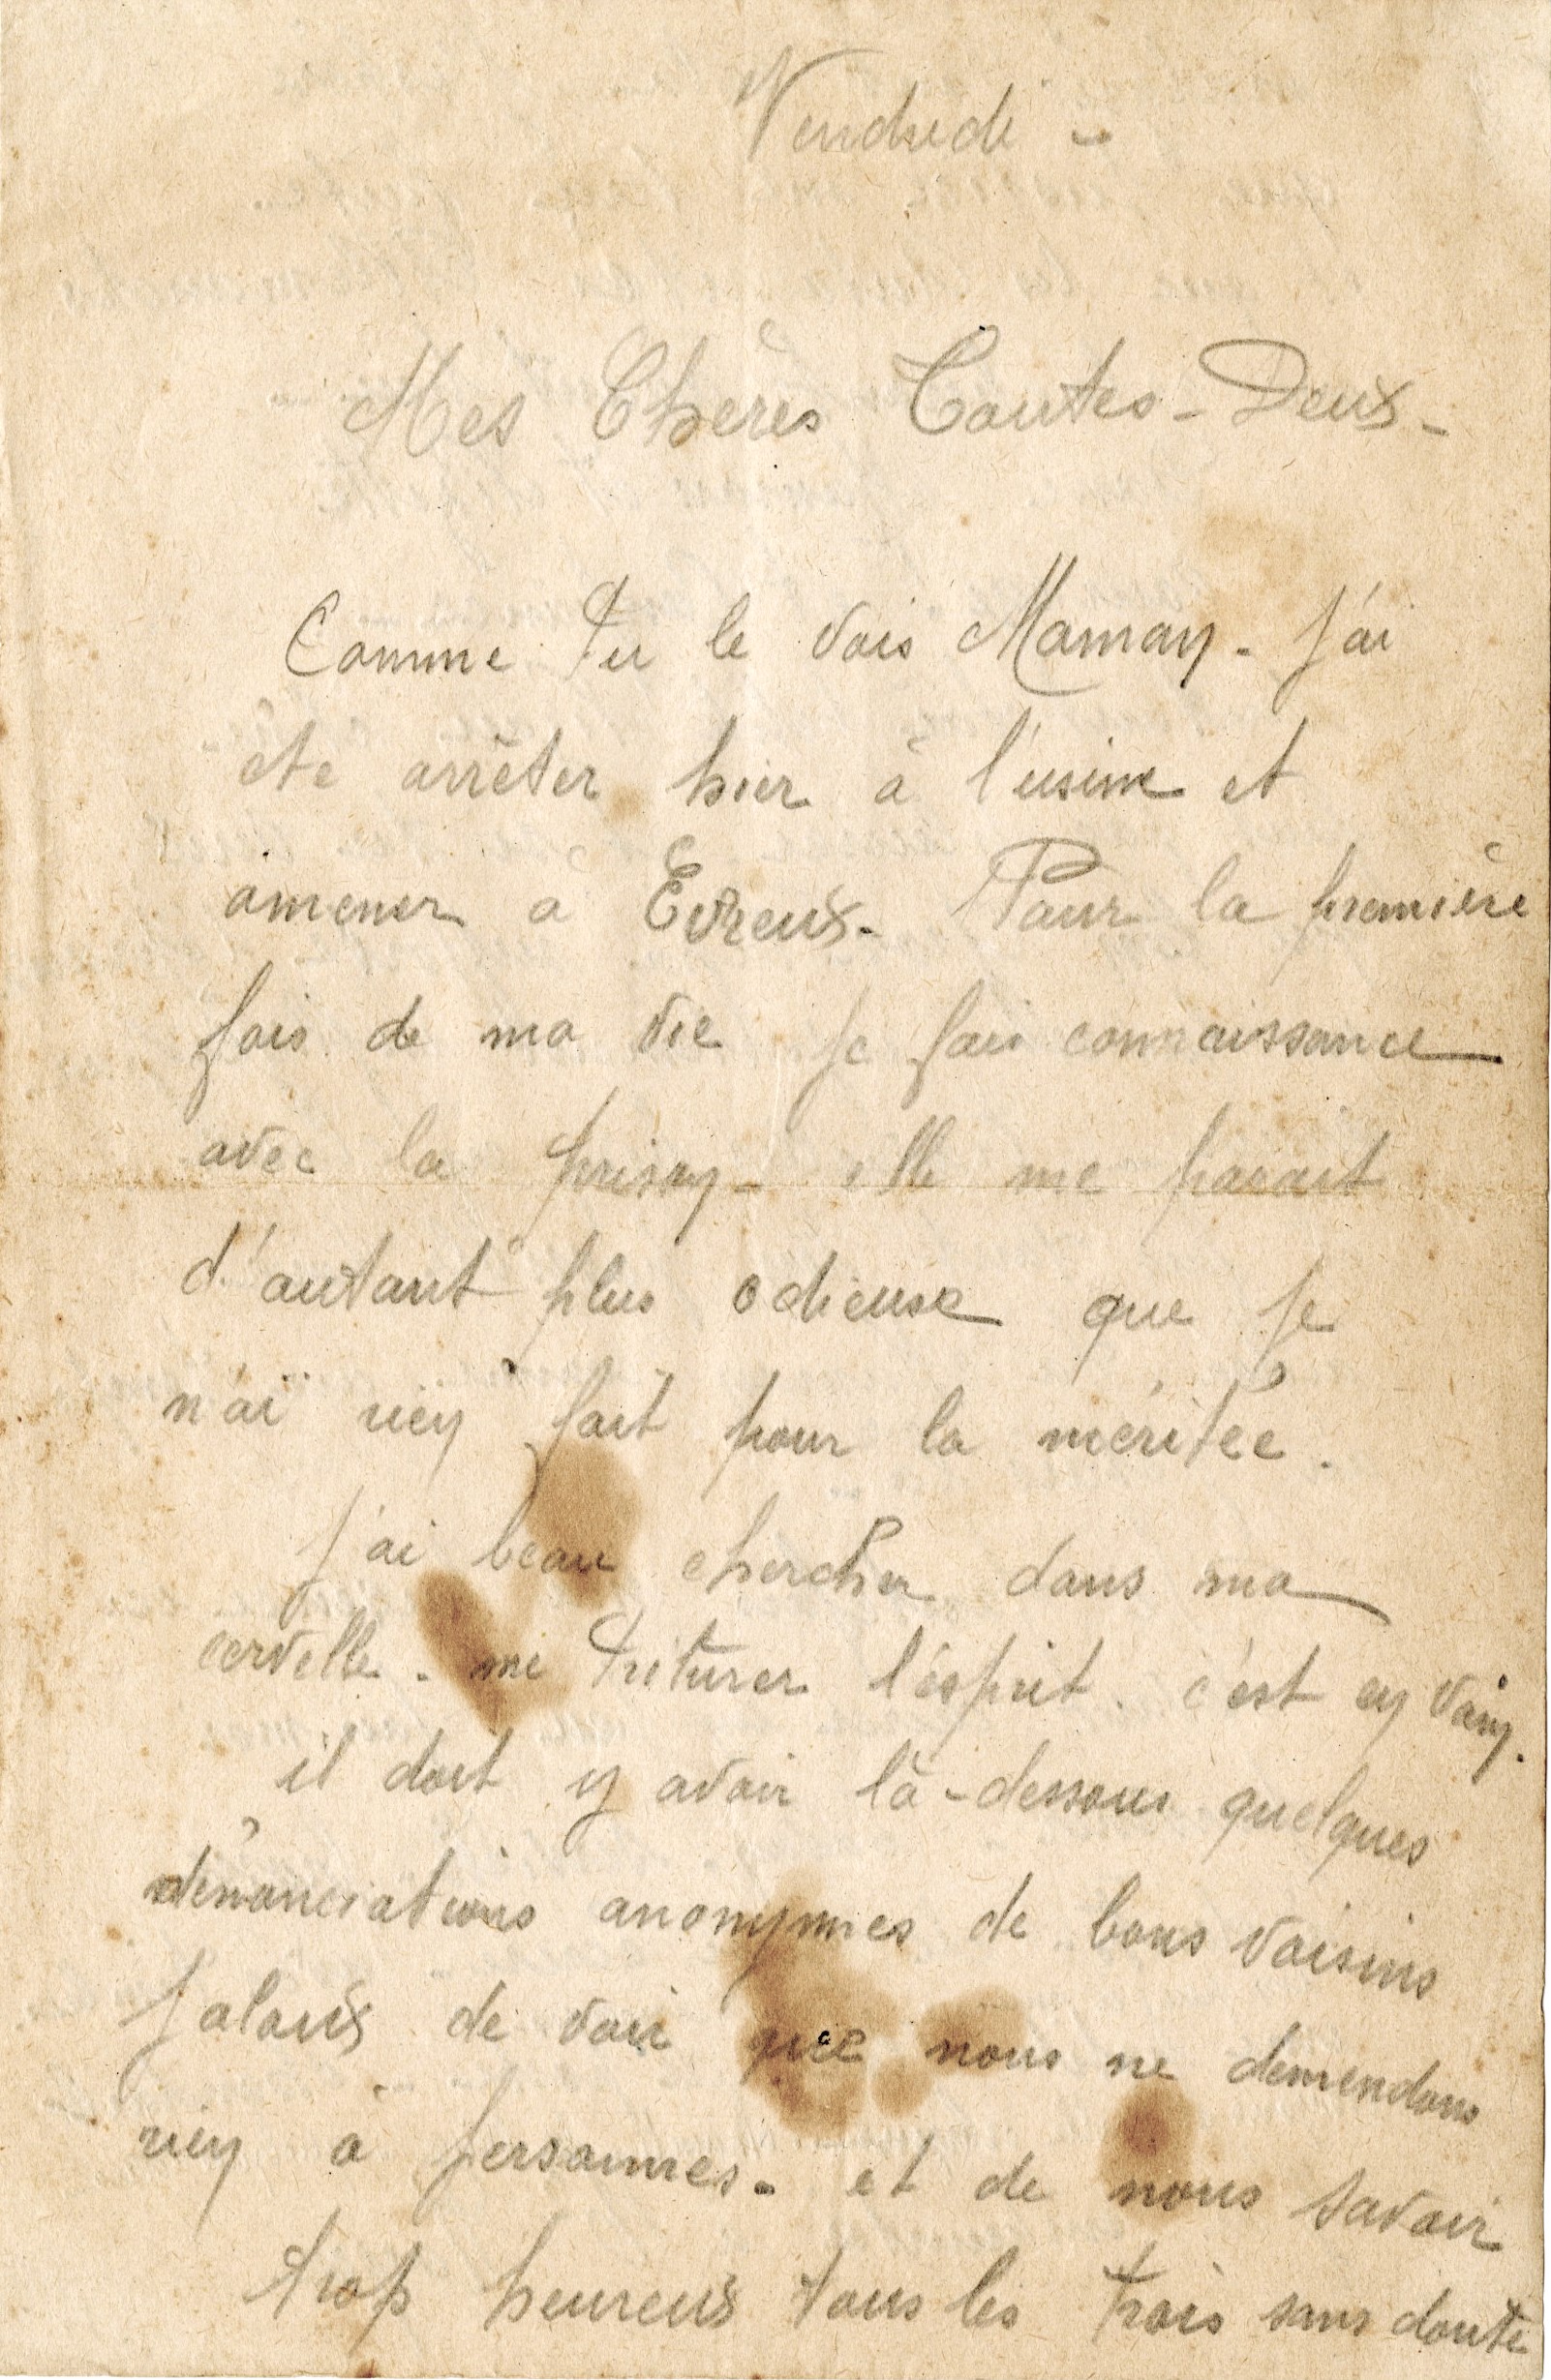 Vendredi -
Mes Chères Toutes-Deux-
Comme tu le vois Maman - j'ai
été arrêter hier à l'usine et
amener à Evreux - Pour la première
fois de ma vie je fais connaissance
avec la prison - elle me parait
d'autant plus odieuse que je
n'ai rien fait pour la méritée.
J'ai beau chercher dans ma
cervelle - me triturer l'esprit. c'est en vain.
il doit y avoir là-dessous quelques
dénonciations anonymes de bons voisins
jaloux de voir que nous ne demendons
rien à personnes - et de nous savoir
trop heureux tous les trois sans doute